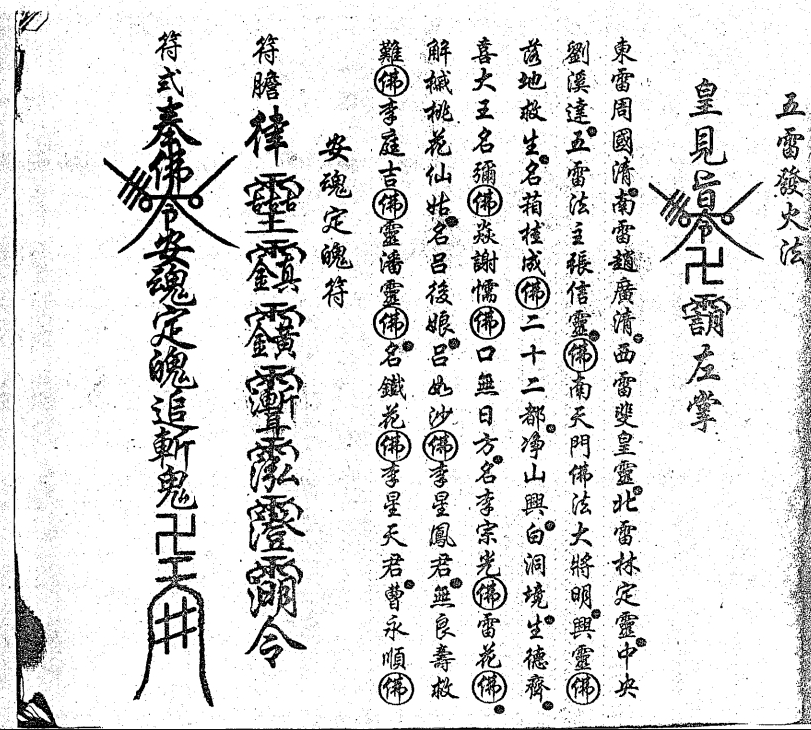 五雷發火法
皇見旨令卍 左掌
東雷周國清南雷趙廣清西雷斐皇靈北雷林定靈中央
劉溪達五雷法主張信靈佛南天門佛法大將明興靈佛
落地救生名 桂成佛二十二都淨山興白洞境生德齊
喜大王名彌佛焱謝懦佛口無日方名李宗光佛雷花佛
解械桃花仙姑名呂後娘呂如沙佛李星鳳君無良壽救
難佛李庭吉佛靈潘靈佛名鐵花佛李星天君曹永順佛
安魂定魄符
符膽 律 令
符式 奉佛令安魂定魄追斬鬼卍王井